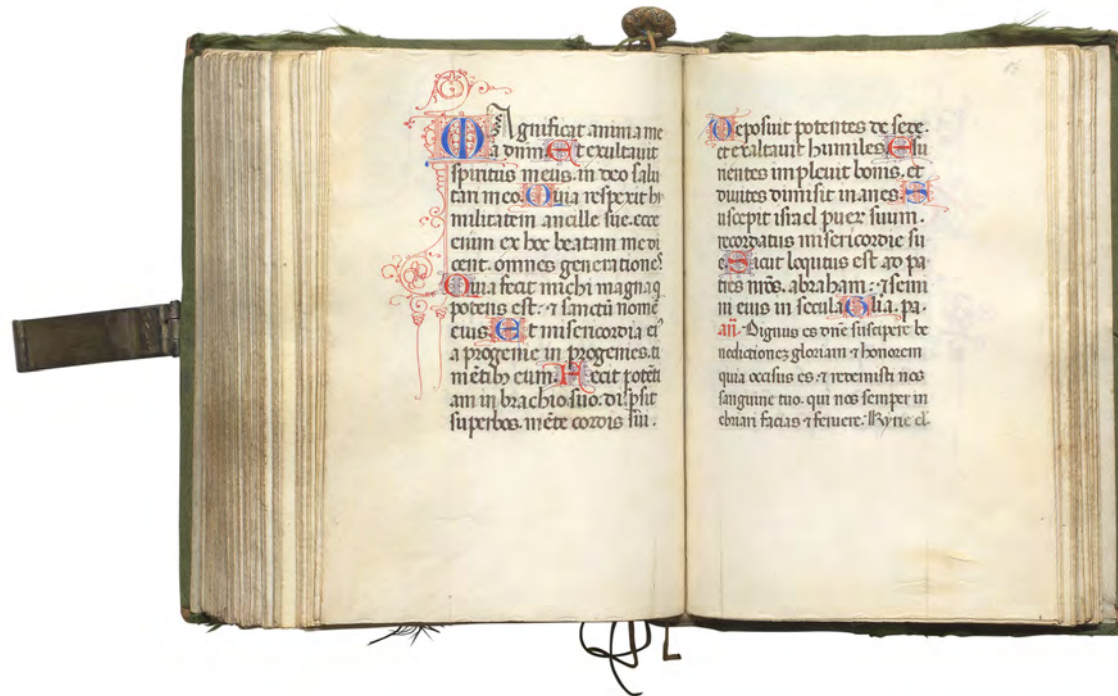 Magnificat anima me
a dnm̄. Et exultauit
spiritus meus. in deo salu
tari meo. Quia respexit hu
militatem ancille sue. ecce
enim ex hoc beatam me di
cent. omnes generationes.
Quia fecit michi magna q̄
potens est. ⁊ sanctū nomē
eius. Et misericordia eiꝰ
a progenie in progenies. ti
mētibꝫ eum. Fecit potēti
am in brachio suo. dispsit
superbos. mēte cordis sui.
Deposuit potentes de sede.
et exaltauit humiles. Esu
rientes impleuit bonis. et
diuites dimisit inanes. S
uscepit israel puer suum.
recordatus misericordie su
e. Sicut loqutus est ad pa
tres nr̄os. abraham. ⁊ semi
ni eius in secula. Glia. pa.
añ. Dignus es dn̄e suscipere be
nedictionez gloriam ⁊ honorem
quia occisus es. ⁊ redemisti nos
sanguine tuo. qui nos semper in
ebriari facias ⁊ feruere. Kyrie el.